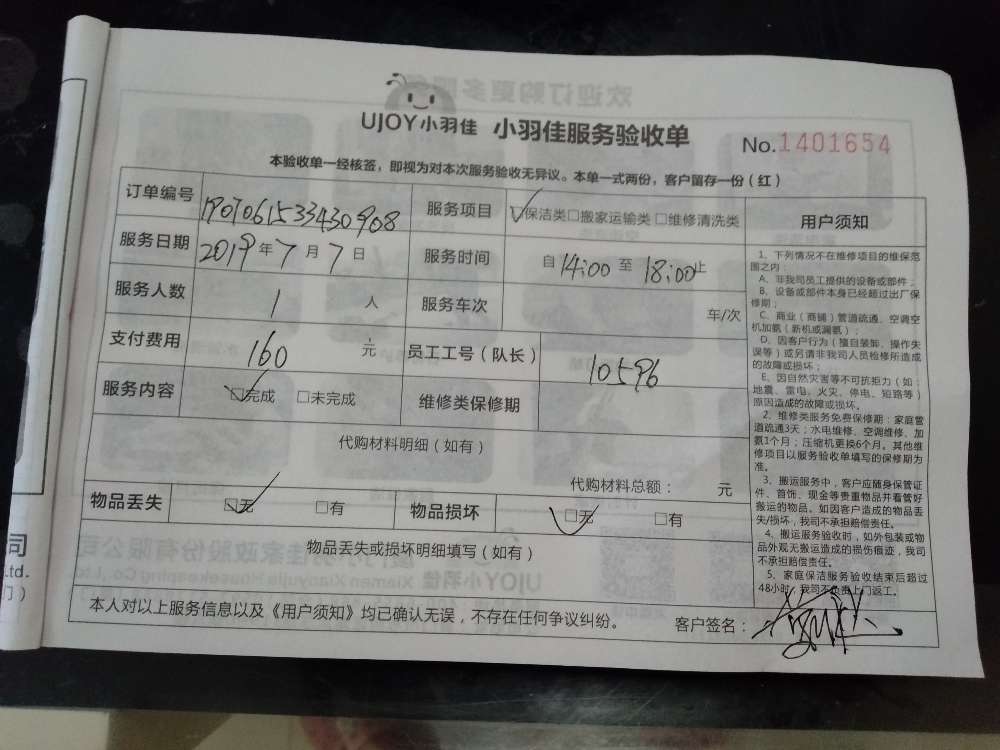 UJOY小羽佳 小羽佳服务验收单
No.1401654
本验收单一经核签，即视为对本次服务验收无异议。本单一式两份，客户留存一份（红）
订单编号 1907061533430908 服务项目 保洁类 搬家运输类 维修清洗类
服务日期 2019年7月7日 服务时间 自14:00至18:00止
服务人数 1 人 服务车次 车/次
支付费用 160 元 员工工号（队长） 10596
服务内容 完成 未完成 维修类保修期
代购材料明细（如有）
代购材料总额： 元
物品丢失 无 有 物品损坏 无 有
物品丢失或损坏明细填写（如有）
本人对以上服务信息以及《用户须知》均已确认无误，不存在任何争议纠纷。 客户签名：
用户须知
1、下列情况不在维修项目的维保范
围之内：
A、非我司员工提供的设备或部件；
B、设备或部件本身已经超过出厂保
修期；
C、商业（商铺）管道疏通、空调空
机加氨（新机或漏氨）；
D、因客户行为（擅自装卸、操作失
误等）或另请非我司人员检修所造成
的故障或损坏；
E、因自然灾害等不可抗拒力（如：
地震、雷电、火灾、停电、短路等）
原因造成的故障或损坏。
2、维修类服务免费保修期：家庭管
道疏通3天；水电维修、空调维修、加
氨1个月；压缩机更换6个月。其他维
修项目以服务验收单填写的保修期为
准。
3、搬运服务中，客户应随身保管证
件、首饰、现金等贵重物品并看管好
搬运的物品。如因客户造成的物品丢
失/损坏，我司不承担赔偿责任。
4、搬运服务验收时，如外包装或物
品外观无搬运造成的损伤痕迹，我司
不承担赔偿责任。
5、家庭保洁服务验收结束后超过
48小时，我司不负责上门返工。
司
Ltd.
门）